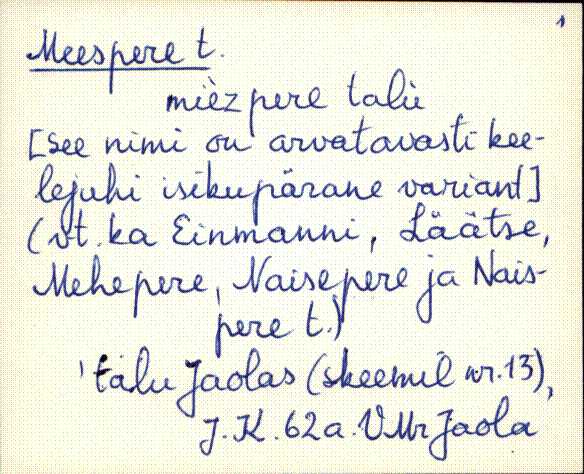 1
Meespere t.
mièz pere talù
[see nimi on arvatavasti kee-
lejuhi isikupärane variant]
(vt. ka Einmanni, Läätse,
Mehepere, Naisepere ja Nais-
pere t.)
talu Jaolas (skeemil nr. 13),
J. K. 62 a. VMr Jaola